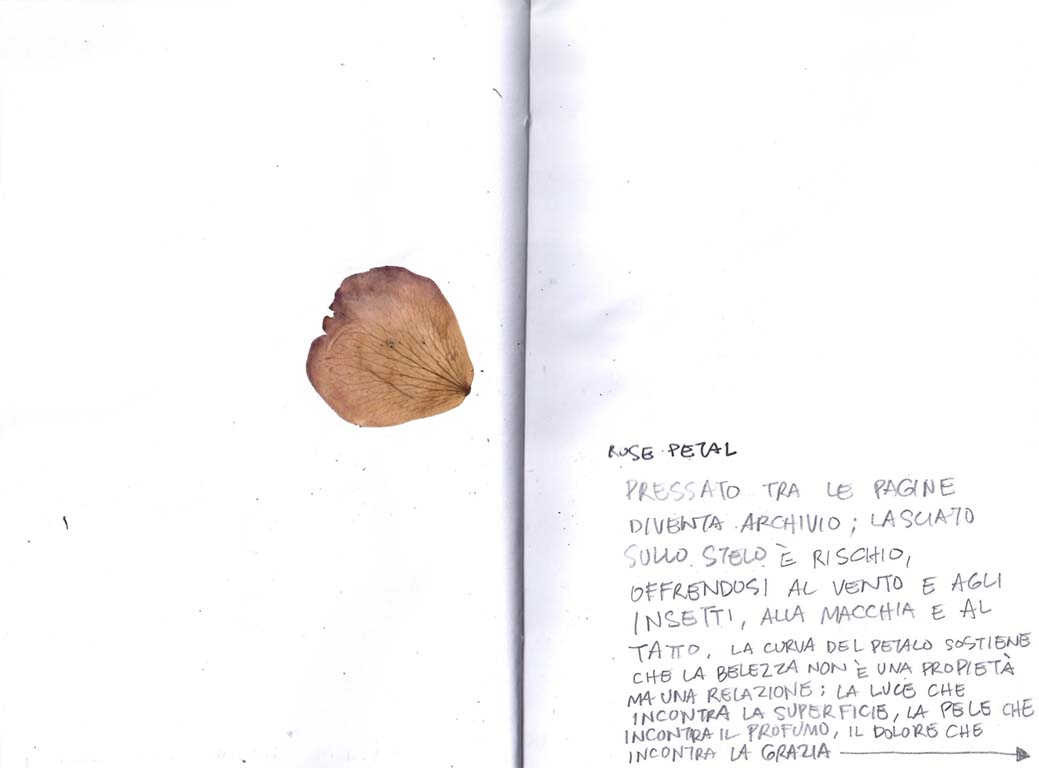 ROSE PETAL
PRESSATO TRA LE PAGINE
DIVENTA ARCHIVIO; LASCIATO
SULLO STELO È RISCHIO,
OFFRENDOSI AL VENTO E AGLI
INSETTI, ALLA MACCHIA E AL
TATTO. LA CURVA DEL PETALO SOSTIENE
CHE LA BELEZZA NON È UNA PROPIETÀ
MA UNA RELAZIONE: LA LUCE CHE
INCONTRA LA SUPERFICIE, LA PELE CHE
INCONTRA IL PROFUMO, IL DOLORE CHE
INCONTRA LA GRAZIA